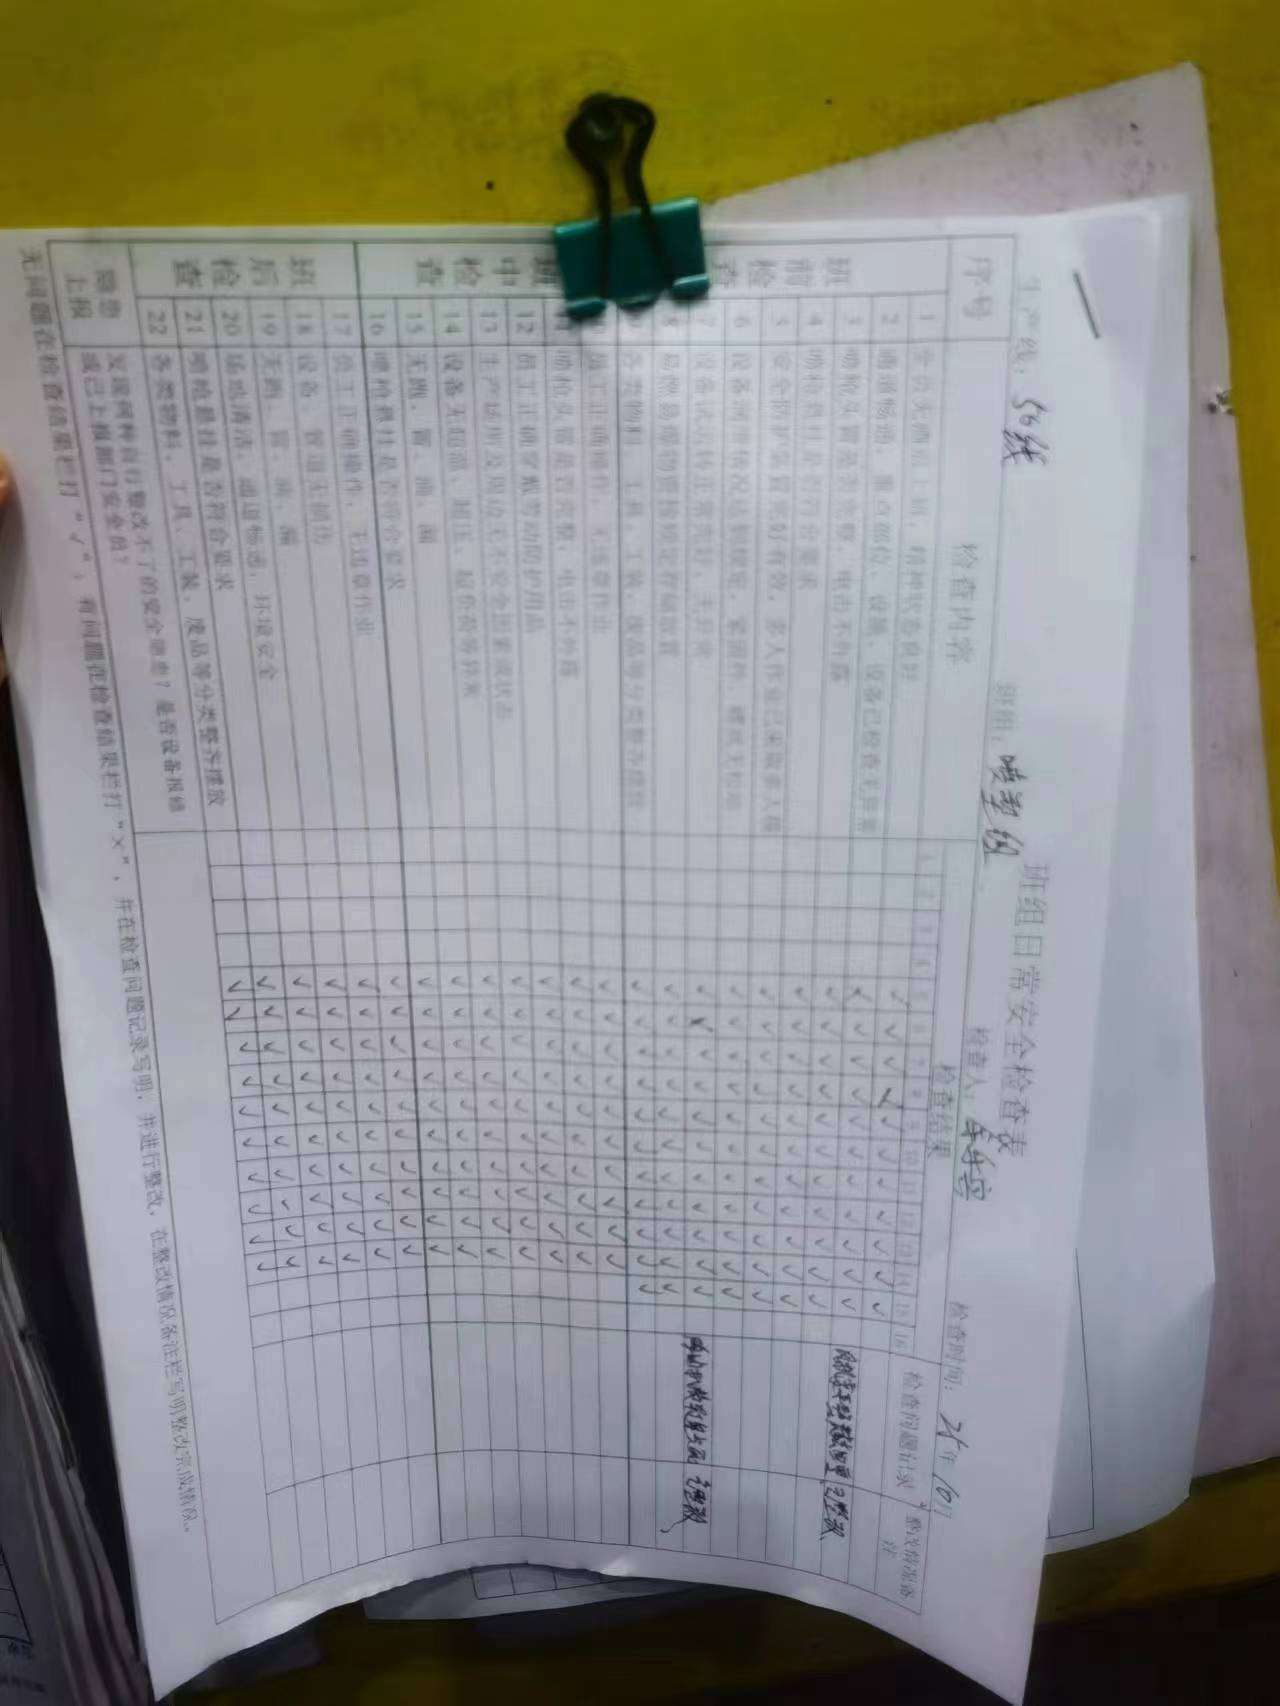 班组日常安全检查表
生产线： 班组：喷塑组 检查人： 检查时间：25年10月
序号 检查内容 检查结果 检查问题记录 整改情况备注
5 6 7 8 9 10 11 12 13 14 15 16
班前检查
1 全员无酒后上班，精神状态良好
2 通道畅通，重点部位、设施、设备已检查无异常
3 喷枪头置是否完整，电击不外露 已整改
4 喷枪悬挂是否符合要求
5 安全防护装置完好有效，多人作业已采取多人操
6 设备润滑情况达到规定，紧固件、螺丝无松动
7 设备试运转正常完好，无异常 已整改
8 易燃易爆物品按规定存储放置
9 各类物料、工具、工装、废品等分类整齐摆放
班中检查
10 员工正确操作，无违章作业
11 喷枪头置是否完整，电击不外露
12 员工正确穿戴劳动防护用品
13 生产场所及周边无不安全因素或状态
14 设备无超温、超压、超负荷等异常
15 无跑、冒、滴、漏
16 喷枪悬挂是否符合要求
班后检查
17 员工正确操作，无违章作业
18 设备、管道无损伤
19 无跑、冒、滴、漏
20 场地清洁、通道畅通，环境安全
21 喷枪悬挂是否符合要求
22 各类物料、工具、工装，废品等分类整齐摆放
隐患上报
发现何种自行整改不了的安全隐患？是否设备报修
或已上报部门安全员？
无问题在检查结果栏打“√”，有问题在检查结果栏打“×”，并在检查问题记录写明，并进行整改，在整改情况备注栏写明整改完成情况。